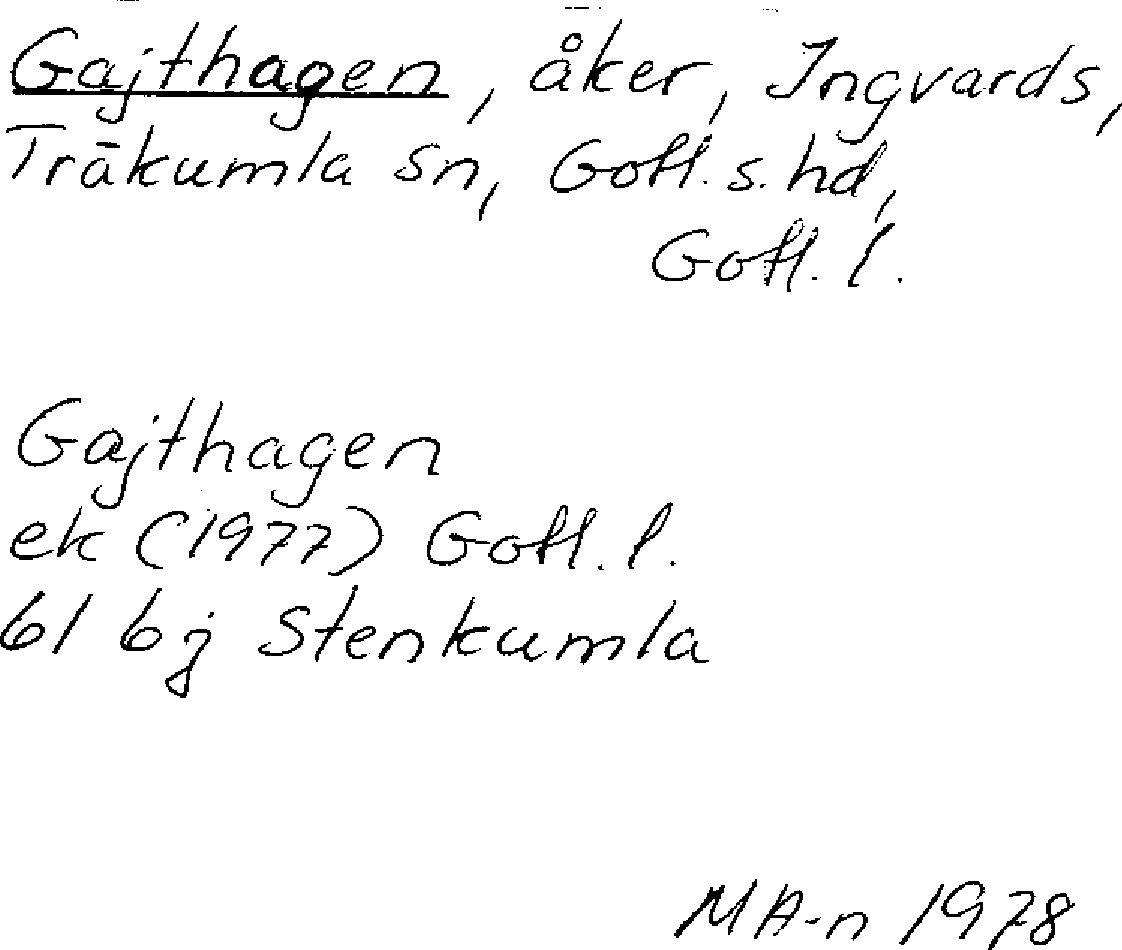 Gajthagen, åker, Ingvards,
Träkumla sn, Gotl. s. hd,
Gotl. l.
Gajthagen
ek (1977) Gotl. l.
6I 6j Stenkumla
MA-n 1978